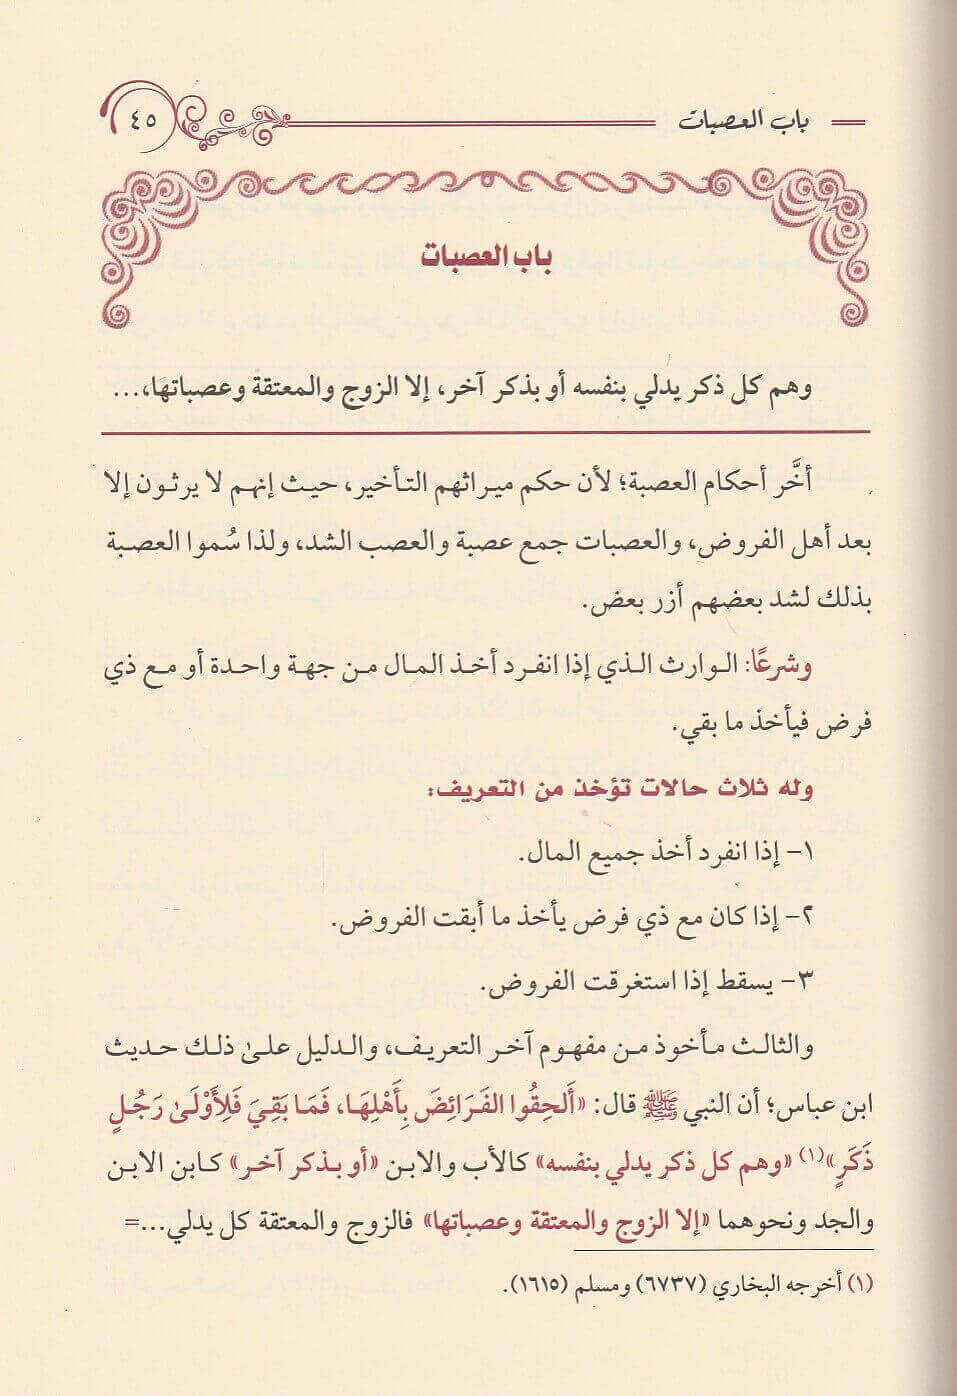 باب العصبات
٤٥
باب العصبات
وهم كل ذكر يدلي بنفسه أو بذكر آخر، إلا الزوج والمعتقة وعصباتها،...
أخَّر أحكام العصبة؛ لأن حكم ميراثهم التأخير، حيث إنهم لا يرثون إلا
بعد أهل الفروض، والعصبات جمع عصبة والعصب الشد، ولذا سُموا العصبة
بذلك لشد بعضهم أزر بعض.
وشرعًا: الوارث الذي إذا انفرد أخذ المال من جهة واحدة أو مع ذي
فرض فيأخذ ما بقي.
وله ثلاث حالات تؤخذ من التعريف:
١- إذا انفرد أخذ جميع المال.
٢- إذا كان مع ذي فرض يأخذ ما أبقت الفروض.
٣- يسقط إذا استغرقت الفروض.
والثالث مأخوذ من مفهوم آخر التعريف، والدليل علىٰ ذلك حديث
ابن عباس؛ أن النبي ﷺ قال: «أَلحِقُوا الفَرَائِضَ بِأَهْلِهَا، فَمَا بَقِيَ فَلِأَوْلَىٰ رَجُلٍ
ذَكَرٍ»(١) «وهم كل ذكر يدلي بنفسه» كالأب والابن «أو بذكر آخر» كابن الابن
والجد ونحوهما «إلا الزوج والمعتقة وعصباتها» فالزوج والمعتقة كل يدلي...=
(١) أخرجه البخاري (٦٧٣٧) ومسلم (١٦١٥).